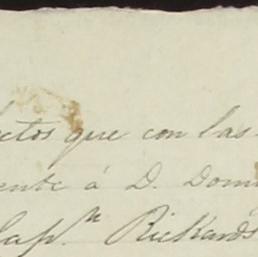 ectos que con las
ente á D. Dom
Cap.n Rickards